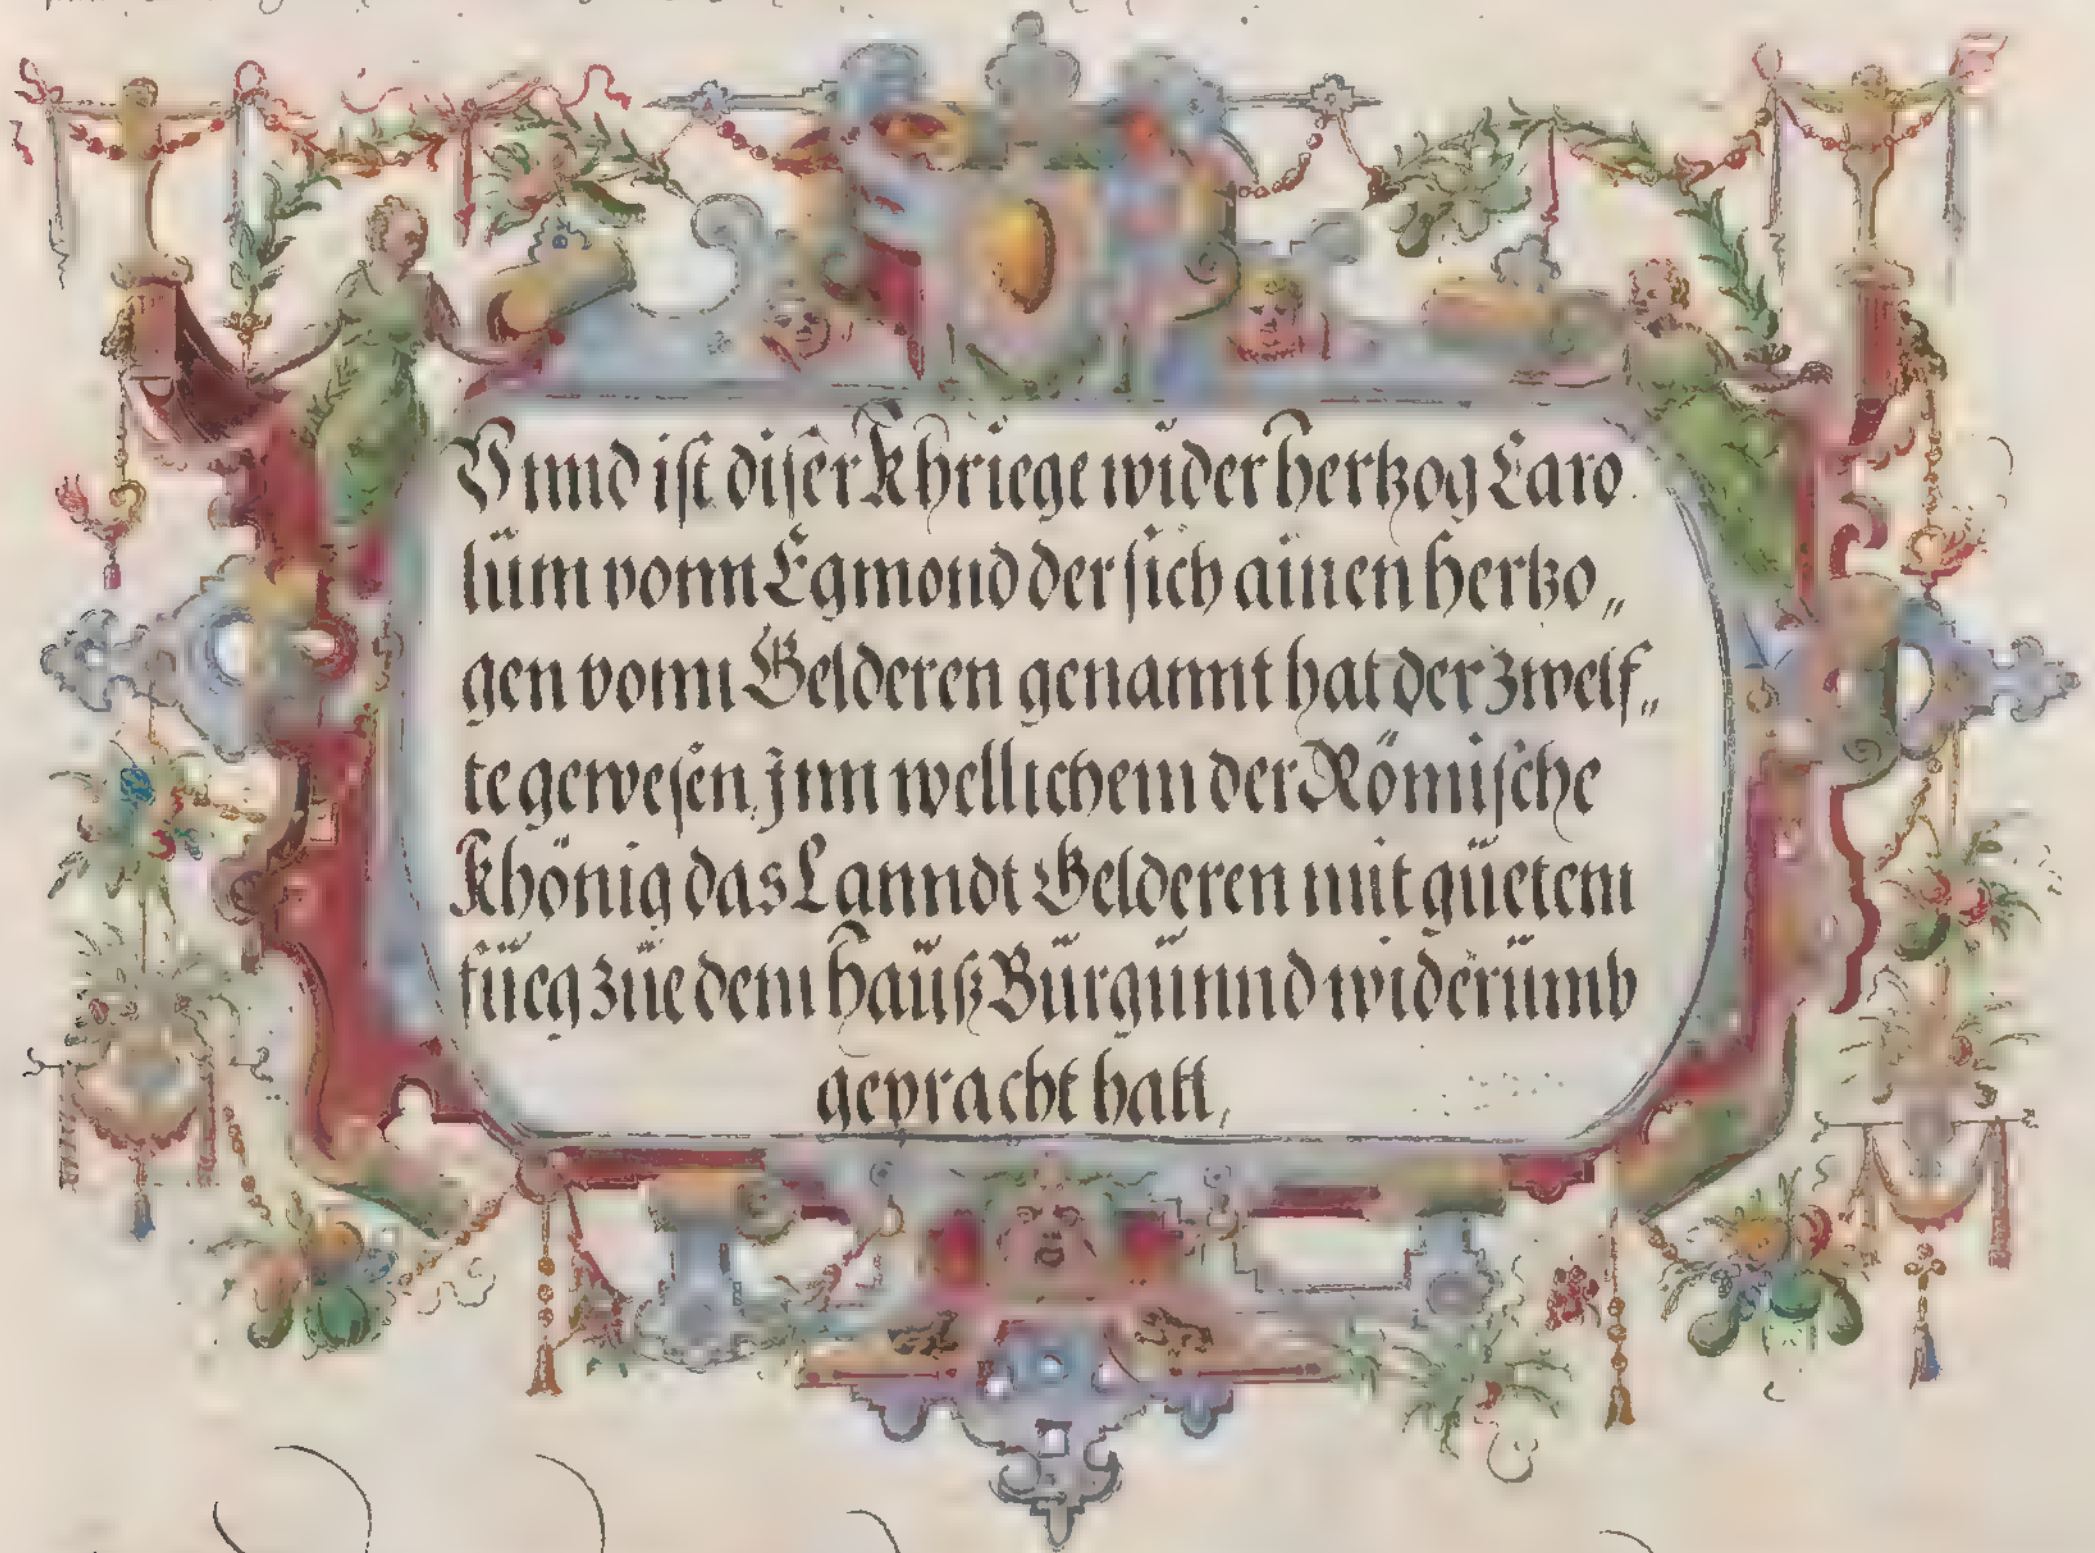 Vnnd ist diser Khriege wider hertzog Caro
lüm vonn Egmond der sich ainen hertzo„
gen vonn Gelderen genannt hat der zwelf„
te gewesen, Jnn wellichem der Römische
Khönig das Lanndt Gelderen mit gùetem
fùeg zùe dem haüß Bürgünnd widerümb
gepracht hatt,